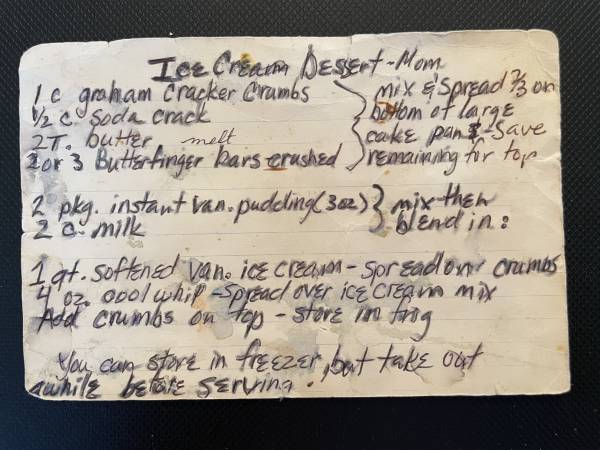 Ice Cream Dessert - Mom
1 c graham cracker crumbs
1/2 c soda crack
2T. butter melt
2 or 3 Butterfinger bars crushed
mix & spread 2/3 on
bottom of large
cake pan - Save
remaining for top
2 pkg. instant van. pudding (3oz)
2 c. milk
mix then
blend in:
1 qt. softened van. ice cream - spread over crumbs
4 oz. cool whip - spread over ice cream mix
Add crumbs on top - store in frig
You can store in freezer, but take out
awhile before serving.